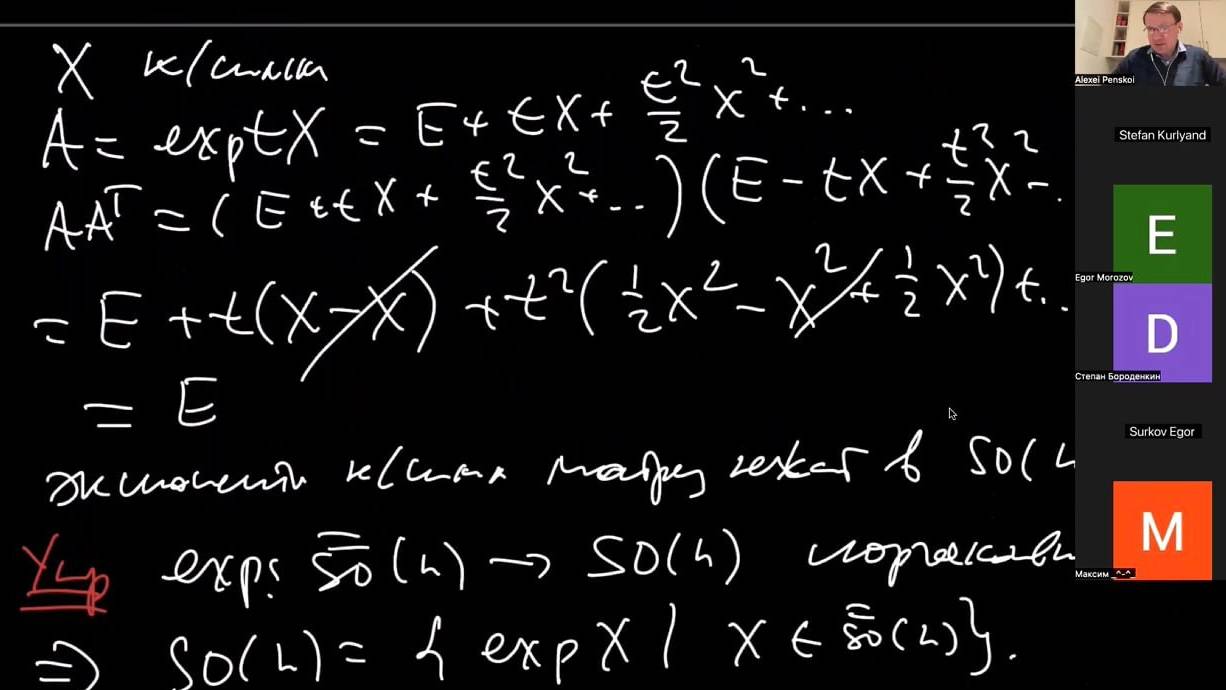 X к/симм
A = exp tX = E + tX + t²/2 X² + ...
AAᵀ = (E + tX + t²/2 X² + ...)(E - tX + t²/2 X² - .
= E + t(X - X) + t²(1/2 X² - X² + 1/2 X²) + ..
= E
экспоненты к/симм матриц лежат в SO(n
Упр exp: so(n) → SO(n) сюръективн
⇒ SO(n) = { exp X | X ∈ so(n)}.
Alexei Penskoi
Stefan Kurlyand
E
Egor Morozov
D
Степан Бороденкин
Surkov Egor
M
Максим ^-^